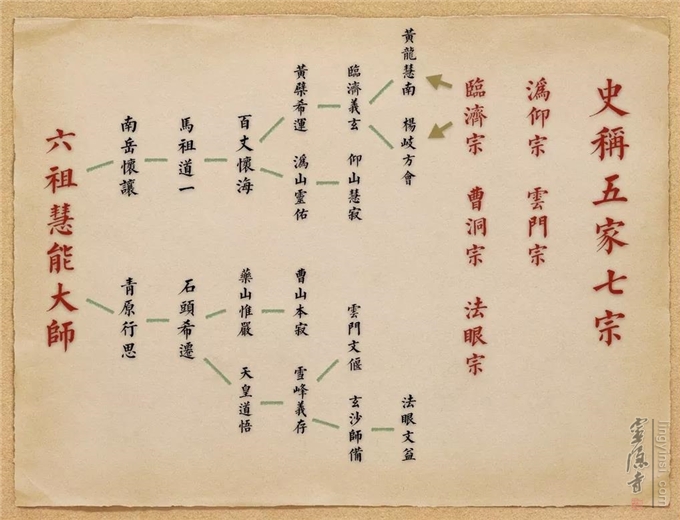 史稱五家七宗
潙仰宗 雲門宗
臨濟宗 曹洞宗 法眼宗
黃龍慧南 楊岐方會
法眼文益
臨濟義玄 仰山慧寂
雲門文偃 玄沙師備
黃檗希運 潙山靈佑
曹山本寂 雪峰義存
百丈懷海
藥山惟嚴 天皇道悟
馬祖道一
石頭希遷
南岳懷讓
青原行思
六祖慧能大師
靈隱寺
lingyinsi.com